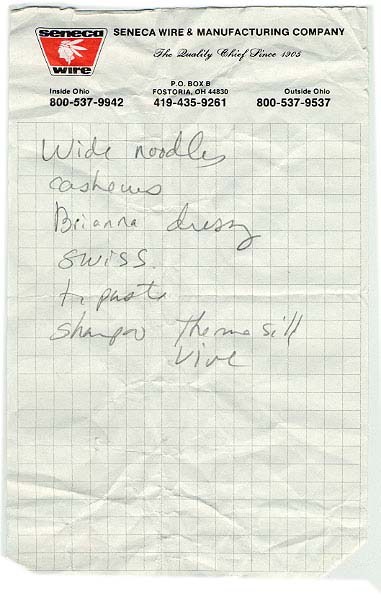 seneca
wire
SENECA WIRE & MANUFACTURING COMPANY
The Quality Chief Since 1905
P.O. BOX B
Inside Ohio FOSTORIA, OH 44830 Outside Ohio
800-537-9942 419-435-9261 800-537-9537
Wide noodles
cashews
Brianna dressg
swiss
t. paste
shampoo Thermasilk
Vive